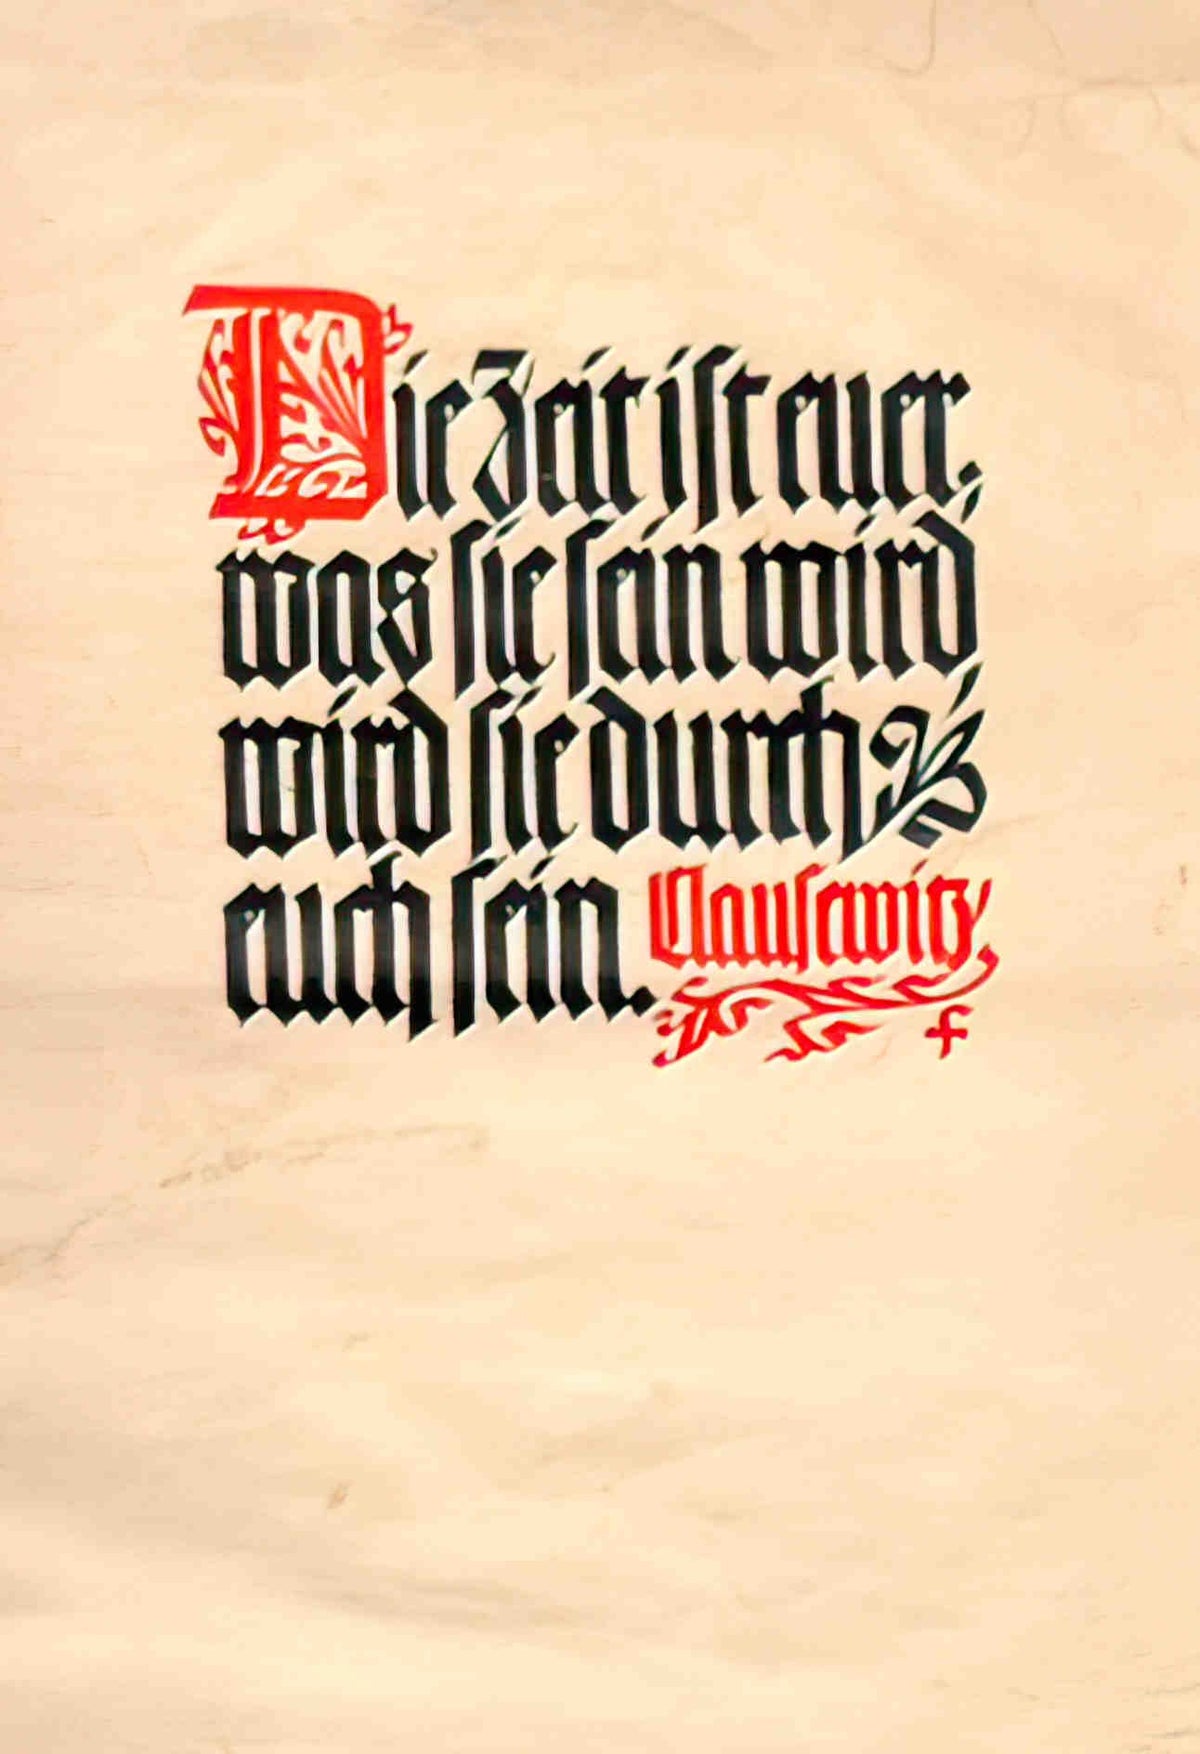 Die Zeit ist euer,
was sie sein wird
wird sie durch
euch sein. Clausewitz